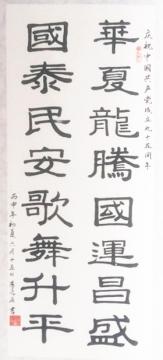 庆祝中国共产党成立九十五周年
華夏龍騰國運昌盛
國泰民安歌舞升平
丙申年初夏六月十五日